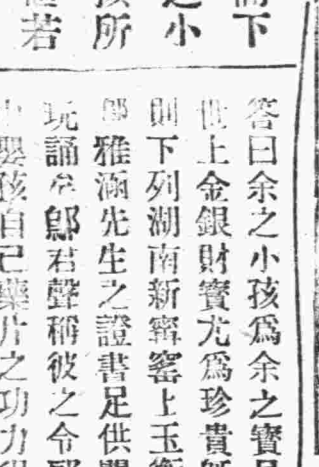 下
之小
所
若
答曰余之小孩爲余之寶
世上金銀財寶尤爲珍貴
則下列湖南新寗窰上玉衡
雅涵先生之證書足供
玩誦矣鄔君聲稱彼之令
嬰孩自己藥片之功力